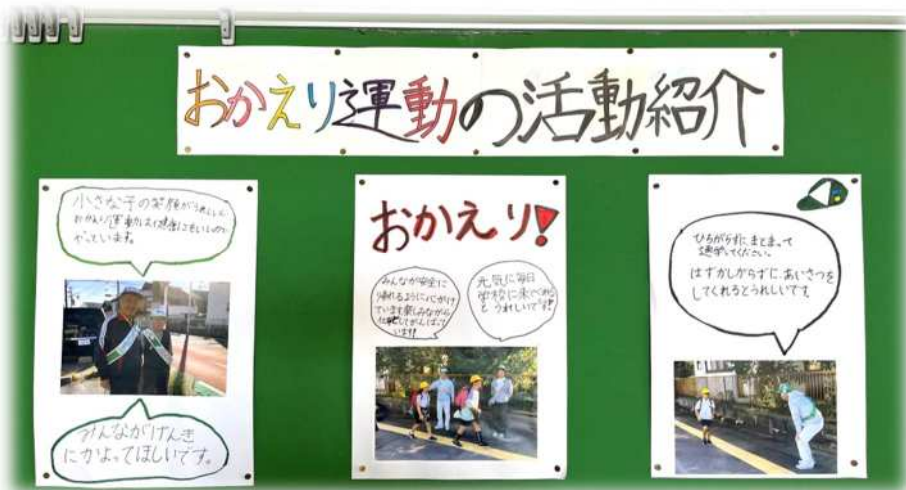 おかえり運動の活動紹介
小さな子の笑顔がうれしい。
おかえり運動は健康にもいいので
やっています。
みんながげんき
にかよってほしいです。
おかえり!
みんなが安全に
帰れるように心がけ
ています。楽しみながら
してがんばって
います!
元気に毎日
学校に来てくれる
とうれしいです!
ひろがらずに、まとまって
通学してください。
はずかしがらずに、あいさつを
してくれるとうれしいです。